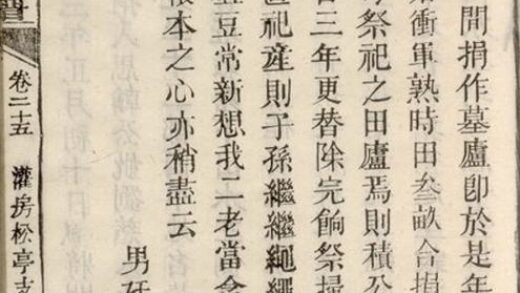 間捐作墓廬卽於是年
衝軍熟時田叄畝合捐
祭祀之田廬焉則積公
三年更替除完餉祭掃
置祀產則子孫繼繼繩繩
豆常新想我二老當含
根本之心亦稍盡云
男
卷二十五 灌房松亭支